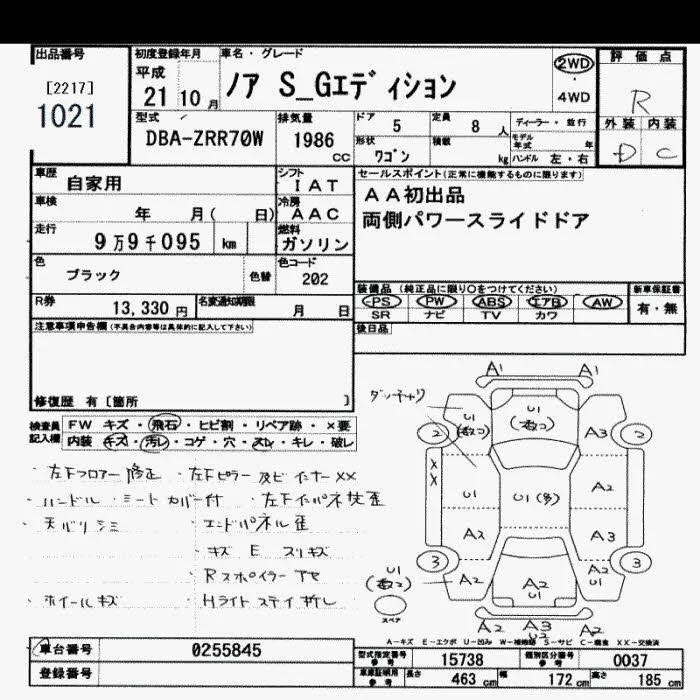 出品番号
[2217]
1021
初度登録年月
平成
21 10 月
車名・グレード
ノア S_Gエディション
2WD
・
4WD
評価点
R
外装 内装
D C
型式
DBA-ZRR70W
排気量
1986
cc
ドア
5
定員
8 人
形状
ワゴン
積載
kg
ディーラー・並行
モデル年式 年
ハンドル 左・右
車歴
自家用
シフト
IAT
車検
年 月( 日)
冷房
AAC
走行
9万9千095 km
燃料
ガソリン
色
ブラック
色替
色コード
202
セールスポイント(正常に機能するものに限ります)
AA初出品
両側パワースライドドア
R券
13,330 円
名変通知期限
月 日
装備品 (純正品に限り○をつけてください)
PS PW ABS エアB AW
SR ナビ TV カワ
新車保証書
有・無
後日品
注意事項申告欄(不具合内容等は具体的に記入して下さい)
修復歴 有〔箇所 〕
検査員
記入欄
FW キズ・飛石・ヒビ割・リペア跡・×要
内装 キズ・汚レ・コゲ・穴・スレ・キレ・破レ
・左Fフロアー修正 ・左Fピラー及ビインナーXX
・ハンドル・シートカバー付 ・左Fインパネ状歪
・天バリシミ ・エンドパネル歪
・キズ E スリキズ
・Rスポイラー
・ホイールキズ ・Hライトステイ折レ
A1 A1
U1
(数コ)
U1
(数コ)
A3
2 2
XX
U1
U1(多)
A2
A2
A3
3 3
U1
(数コ)
A2
A2
U1
A2
U1
スペア
A2 A3 A2
U2
A-キズ E-エクボ U-凹み W-補修跡 S-サビ C-腐食 XX-交換済
車台番号
0255845
登録番号
型式指定番号
参考
15738
類別区分番号
参考
0037
車庫証明用
参考
長さ
463 cm
幅
172 cm
高さ
185 cm